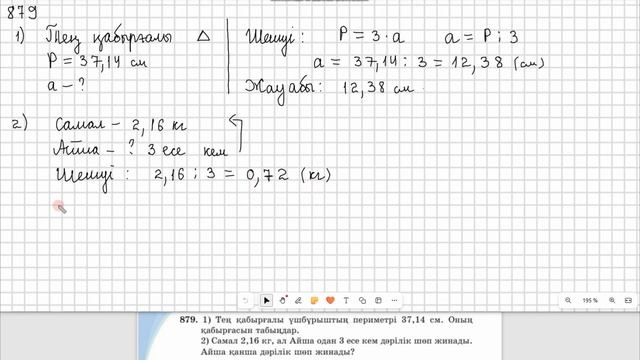 879
1) Тең қабырғалы △
P = 37,14 см
a – ?
Шешуі: P = 3 · a   a = P : 3
a = 37,14 : 3 = 12,38 (см)
Жауабы: 12,38 см.
2) Самал – 2,16 кг
Айша – ? 3 есе кем
Шешуі: 2,16 : 3 = 0,72 (кг)
195 %
879. 1) Тең қабырғалы үшбұрыштың периметрі 37,14 см. Оның
қабырғасын табыңдар.
2) Самал 2,16 кг, ал Айша одан 3 есе кем дәрілік шөп жинады.
Айша қанша дәрілік шөп жинады?